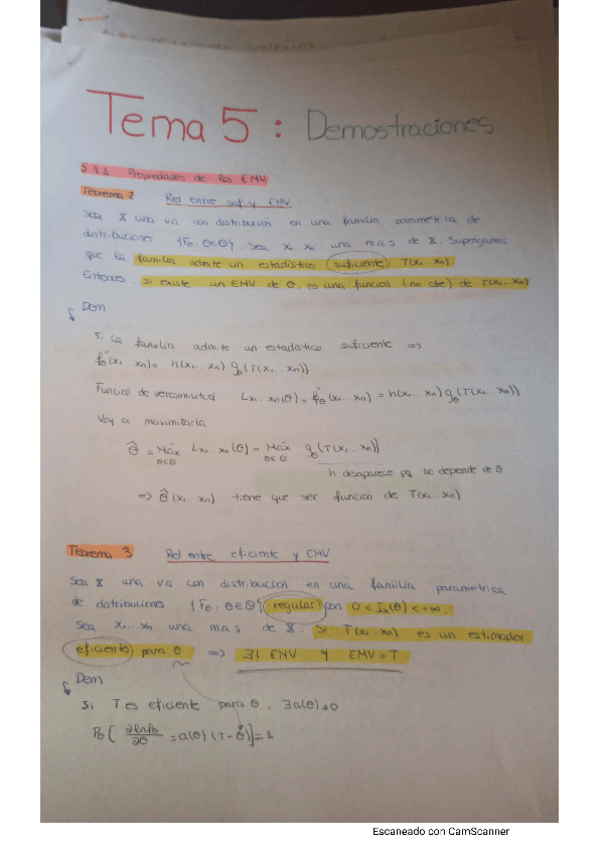 Tema 5 : Demostraciones
5.1.1 Propiedades de los EMV
Teorema 2 Rel entre suf y EMV
Sea X una va con distribución en una familia parametrica de
distribuciones {Fθ, θ∈Θ}. Sea X₁ Xn una m.a.s de X. Supongamos
que la familia admite un estadístico suficiente T(X₁ Xn)
Entonces, si existe un EMV de θ, es una función (no cte) de T(X₁ Xn)
Dem
Si la familia admite un estadístico suficiente =>
fθⁿ(x₁ xn) = h(x₁ xn) gθ(T(x₁ .. xn))
Función de verosimilitud Lx₁.. xn(θ) = fθⁿ(x₁ .. xn) = h(x₁ .. xn) gθ(T(x₁ .. xn))
Voy a maximizarla
θ̂ = Máx Lx₁ xn(θ) = Máx gθ(T(x₁ .. xn))
θ∈Θ θ∈Θ
h desaparece pq no depende de θ
=> θ̂(x₁ xn) tiene que ser función de T(x₁ xn)
Teorema 3 Rel entre eficiente y EMV
Sea X una va con distribución en una familia parametrica
de distribuciones {Fθ, θ∈Θ} regular con 0 < Ix(θ) < +∞.
Sea X₁... Xn una m.a.s de X. Si T(X₁ Xn) es un estimador
eficiente para θ => ∃! EMV y EMV = T
Dem
Si T es eficiente para θ, ∃a(θ)≠0
Pθ[ ∂lnfθ/∂θ = a(θ) (T-θ)] = 1
Escaneado con CamScanner